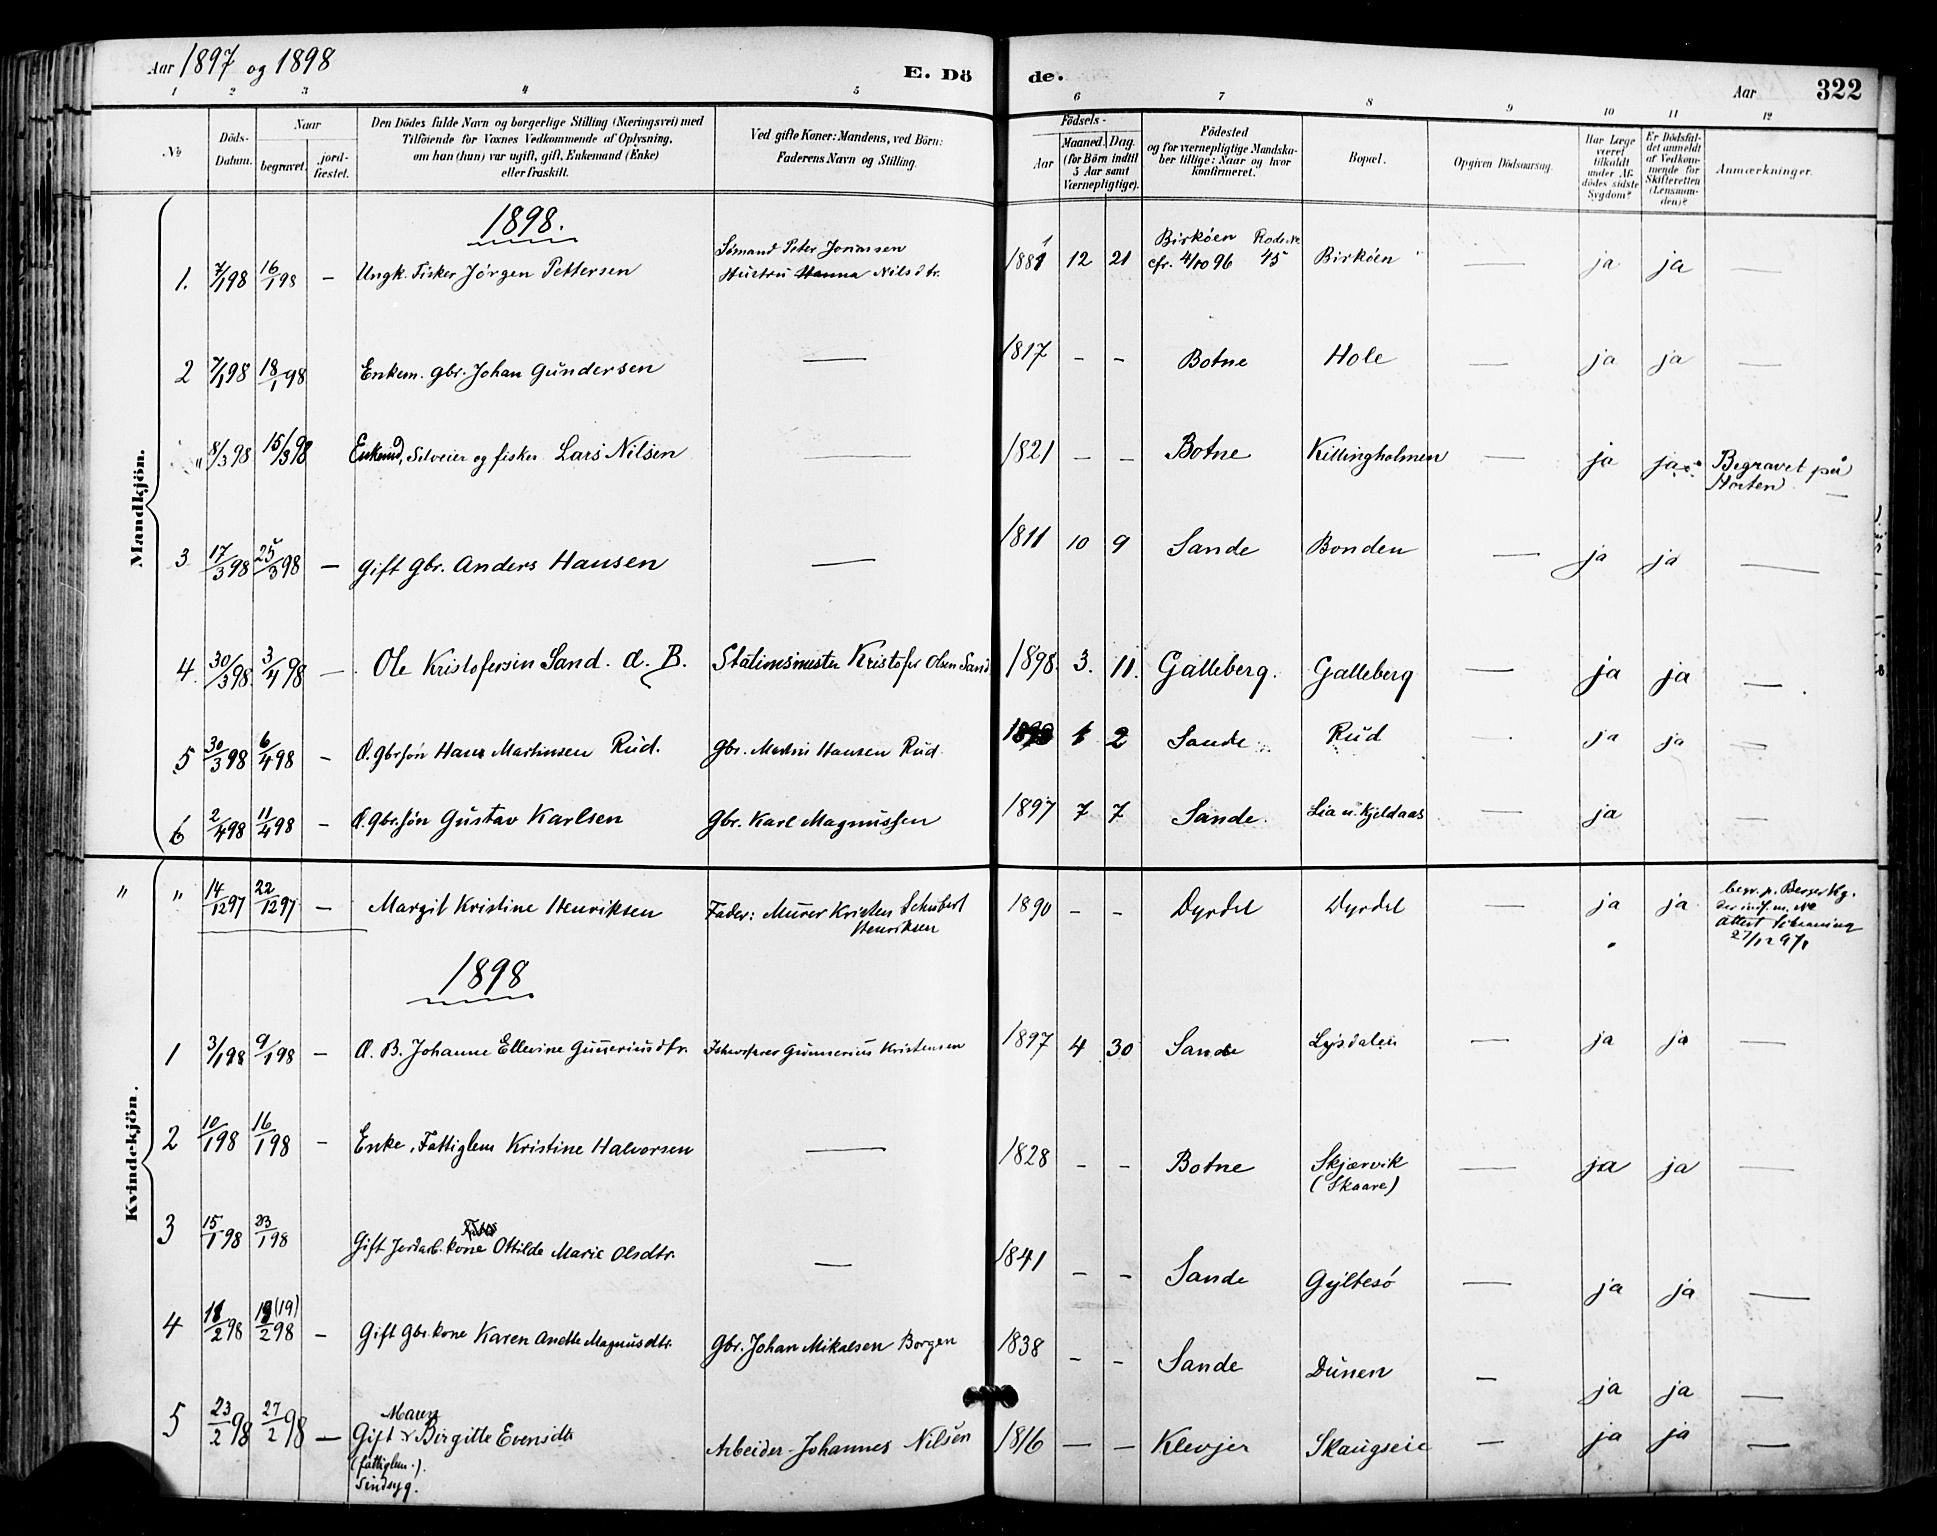 Aar 1897 og 1898
E. Dö de.
Aar 322
1 2 3 4 5 6 7 8 9 10 11 12
No
Döds-Datum.
Naar
begravet.
jordfæstet.
Den Dödes fulde Navn og borgerlige Stilling (Næringsvei) med
Tilföiende for Voxnes Vedkommende af Oplysning,
om han (hun) var ugift, gift, Enkemand (Enke)
eller fraskilt.
Ved gifte Koner: Mandens, ved Börn:
Faderens Navn og Stilling.
Födsels-
Aar
Maaned. Dag.
(for Börn indtil
5 Aar samt
Værnepligtige).
Födested
og for værnepligtige Mandska-
ber tillige: Naar og hvor
konfirmeret.
Bopæl.
Opgiven Dödsaarsag.
Har Læge
været
tilkaldt
under Af-
dödes sidste
Sygdom?
Er Dödsfal-
det anmeldt
af Vedkom-
mende for
Skifteretten
(Lensman-
den)?
Anmærkninger.
Mandkjön.
1898.
1. 7/1 98 16/1 98 — Ungk. Fisker Jörgen Pettersen Sömand Peter Jonassen
Hustru Hanna Nilsdtr. 1881 12 21 Birköen Rode No
cfr. 4/10 96 45 Birköen ja ja —
2 7/1 98 18/1 98 Enkem. gbr. Johan Gundersen — 1817 - - Botne Hole — ja ja —
" 8/3 98 15/3 98 Enkemd, Selveier og fisker Lars Nilsen — 1821 — — Botne Killingholmen — ja ja Begravet på
Horten. —
3 17/3 98 25/3 98 — gift gbr. Anders Hansen — 1811 10 9 Sande Bonden — ja ja —
4 30/3 98 3/4 98 — Ole Kristofersen Sand. d. B. Stationsmester Kristofer Olsen Sand 1898. 3. 11. Galleberg. Galleberg — ja ja —
5 30/3 98 6/4 98 - d. gbrsön Hans Martinsen Rud. gbr. Martin Hansen Rud. 2 Sande Rud — ja ja —
6 2/4 98 11/4 98 - d. gbrsön Gustav Karlsen gbr. Karl Magnussen 1897 7 7 Sande. Lia u. Kjeldaas — ja —
Kvindekjön.
" " 14/12 97 22/12 97 — Margit Kristine Henriksen Fader: Murer Kristen Schubert
Henriksen 1890 - - Dyrdal Dyrdal — ja ja begr. p. Berger Kg.
27/12 97
1898
1 3/1 98 9/1 98 — d. B. Johanne Ellevine Gunneriusdtr. Gunnerius Kristensen 1897 4 30 Sande Lysdalen — ja ja —
2 10/1 98 16/1 98 - Enke, Fattiglem Kristine Halvorsen — 1828 - - Botne Skjærvik
(Skaare) — ja ja —
3 15/1 98 23/1 98 Gift Jordarb. kone Ottilde Marie Olsdtr. — 1841 - - Sande Gyltesö — ja ja —
4 11/2 98 (19)/2 98 - Gift Gbr. kone Karen Anette Magnusdtr. Gbr. Johan Mikalsen Borgen 1838 - - Sande Dunen — ja ja —
5 23/2 98 27/2 98 — Maren
Gift Birgitte Evensdtr
(fattiglem.).
Sindsyg. Arbeider Johannes Nilsen 1816 — — Klevjer Skaugseie — ja ja —